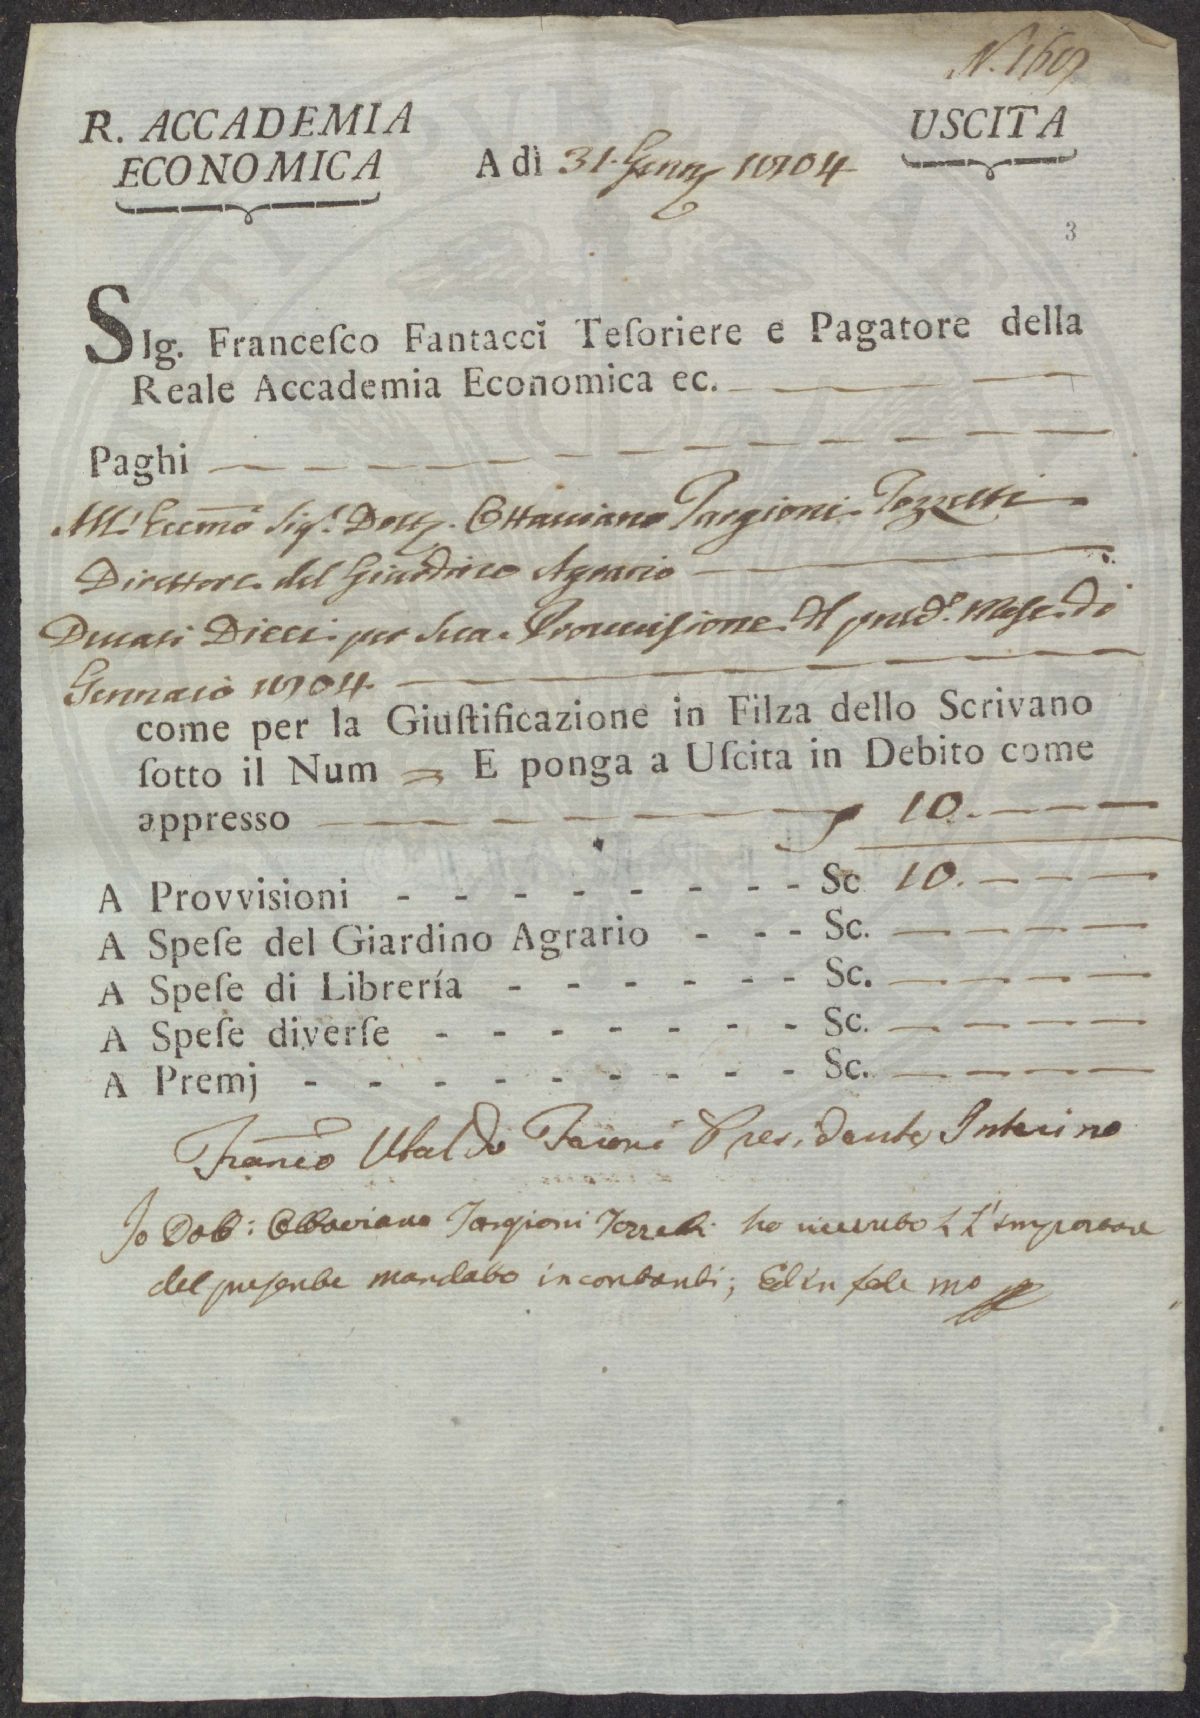 N. 1607
R. ACCADEMIA
ECONOMICA
A dì 31. Genn.º 1804
USCITA
3
SIg. Franceſco Fantacci Teſoriere e Pagatore della
Reale Accademia Economica ec.
Paghi
All' Eccmõ Sigr. Dott. Ottaviano Targioni Tozzetti
Direttore del Giardino Agrario
Ducati Dieci per Sua Provvisione del pred.º Mese di
Gennaio 1804
come per la Giuſtificazione in Filza dello Scrivano
ſotto il Num E ponga a Uſcita in Debito come
appresso 10.
A Provvisioni - - - - - - - - Sc 10.
A Speſe del Giardino Agrario - - - Sc.
A Speſe di Librería - - - - - - Sc.
A Speſe diverſe - - - - - - - Sc.
A Premj - - - - - - - - - Sc.
Franco Ubaldo Feroni Presidente Interino
Io Dott: Ottaviano Targioni Tozzetti ho ricevuto L'importare
del presente mandato in contanti; Ed in fede mo